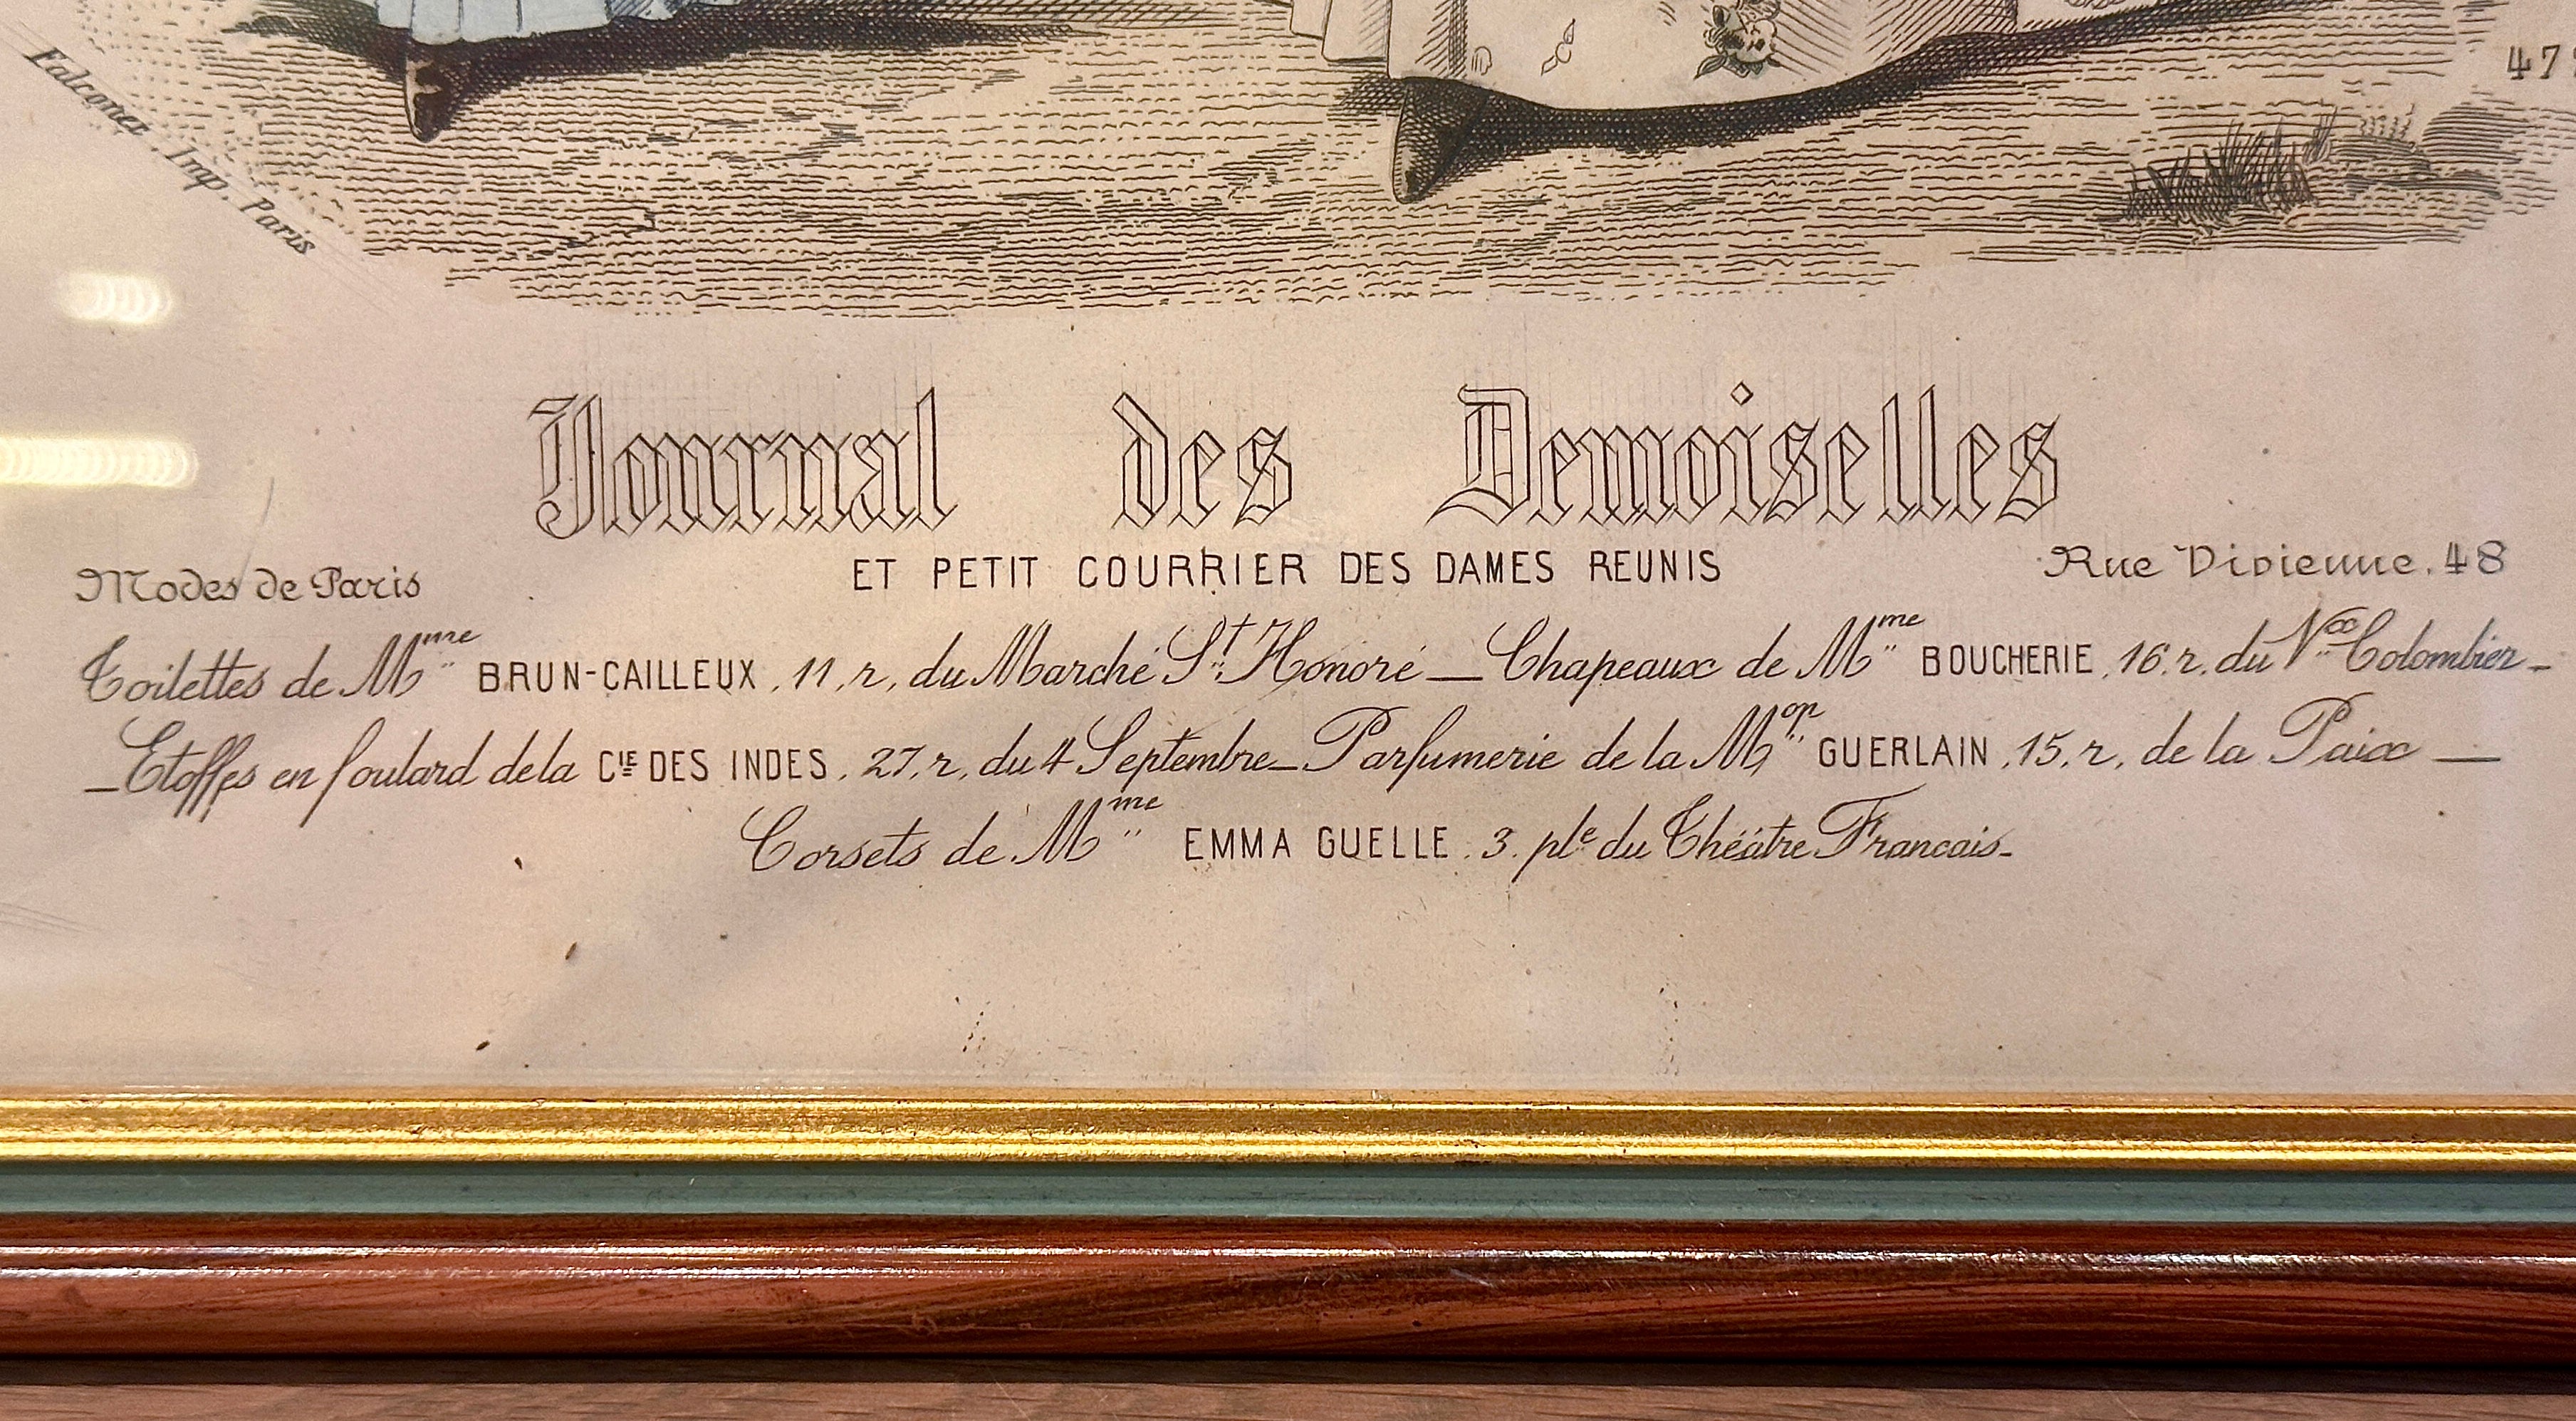 Falconer, Imp. Paris
Journal des Demoiselles
ET PETIT COURRIER DES DAMES REUNIS
Modes de Paris
Rue Vivienne. 48
Toilettes de Mme BRUN-CAILLEUX, 11, r, du Marché St Honoré — Chapeaux de Mme BOUCHERIE, 16, r. du Vx Colombier-
- Etoffes en foulard de la CIE DES INDES, 27, r, du 4 Septembre - Parfumerie de la Mon GUERLAIN, 15, r, de la Paix —
Corsets de Mme EMMA GUELLE. 3. ple du Théâtre Francais-